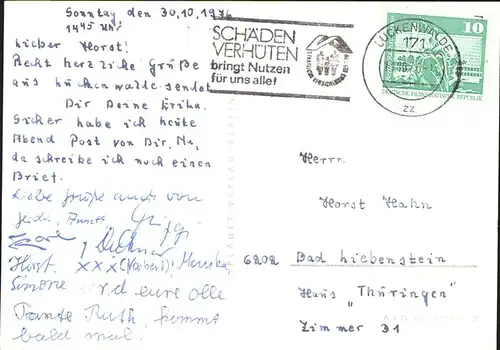 Sonntag den 30.10.1976
14 45 Uhr
Lieber Horst!
Recht herzliche Grüße
aus Luckenwalde sendet
Dir Deine Erika.
Sicher habe ich heute
Abend Post von Dir. Na,
da schreibe ich noch einen
Brief.
Liebe Grüße auch von
Horst, xxx (Norbert),
Simone und eure olle
Tante Ruth, kommt
bald mal.
SCHÄDEN
VERHÜTEN
bringt Nutzen
für uns alle!
LUCKENWALDE
171
zz
10
DEUTSCHE DEMOKRATISCHE REPUBLIK
PLANET VERLAG BERLIN
Herrn
Horst Hahn
6202 Bad Liebenstein
Haus "Thüringen"
Zimmer 31